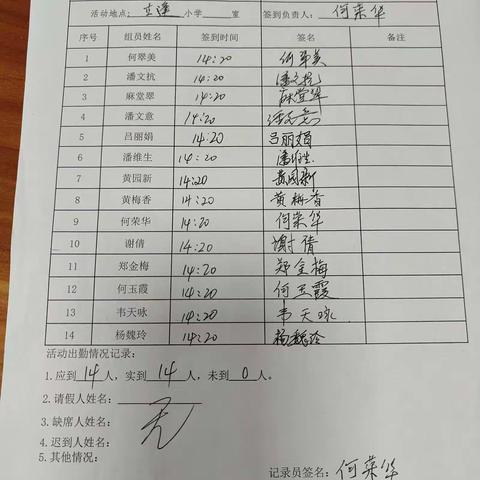 活动地点：立達小学 室 签到负责人：何荣华
序号 组员姓名 签到时间 签名 备注
1 何翠美 14:20 何翠美
2 潘文抗 14:20 潘文抗
3 麻堂翠 14:20 麻堂翠
4 潘文意 14:20 潘文意
5 吕丽娟 14:20 吕丽娟
6 潘维生 14:20 潘维生
7 黄园新 14:20 黄园新
8 黄梅香 14:20 黄梅香
9 何荣华 14:20 何荣华
10 谢倩 14:20 谢倩
11 郑金梅 14:20 郑金梅
12 何玉霞 14:20 何玉霞
13 韦天咏 14:20 韦天咏
14 杨魏玲 14:20 杨魏玲
活动出勤情况记录：
1.应到14人，实到14人，未到0人。
2.请假人姓名：
3.缺席人姓名：无
4.迟到人姓名：
5.其他情况：
记录员签名：何荣华